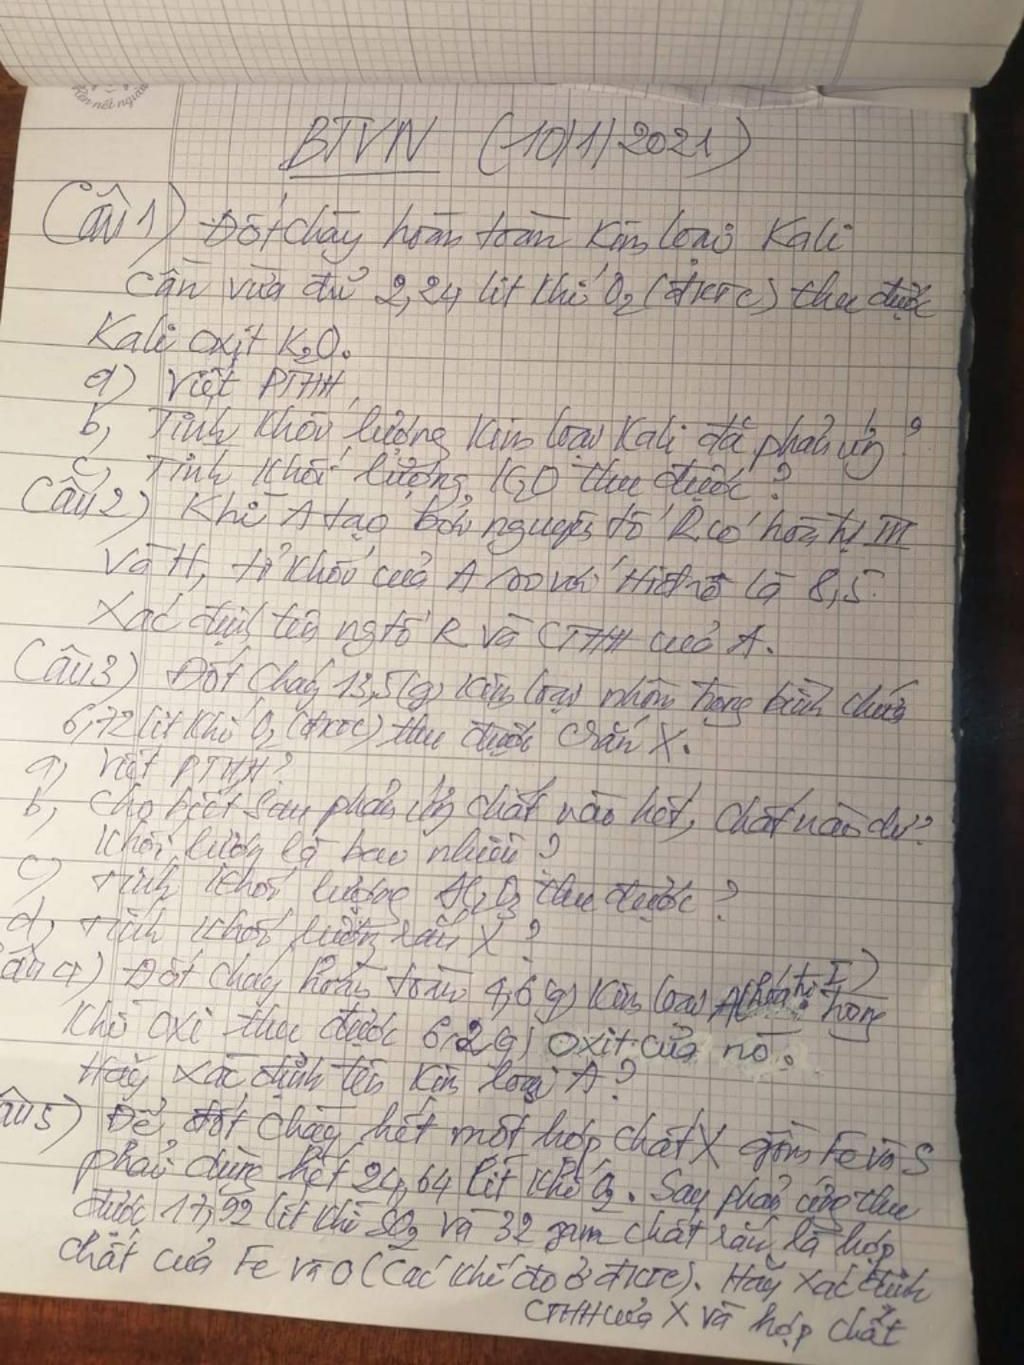 rèn nết người
BTVN (10/1/2021)
Câu 1) Đốt cháy hoàn toàn kim loại Kali
cần vừa đủ 2,24 lít khí O2 (đktc) thu được
Kali oxit K2O.
a) Viết PTHH
b, Tính khối lượng kim loại Kali đã phản ứng?
c, Tính khối lượng K2O thu được?
Câu 2) Khí A tạo bởi nguyên tố R có hoá trị III
và H, tỉ khối của A so với Hiđrô là 8,5.
Xác định tên ng tố R và CTHH của A.
Câu 3) Đốt cháy 13,5(g) kim loại nhôm trong bình chứa
6,72 lít khí O2 (đktc) thu được rắn X.
a, Viết PTHH?
b, Cho biết sau phản ứng chất nào hết, chất nào dư?
Khối lượng là bao nhiêu?
c) Tính khối lượng Al2O3 thu được?
d, Tính khối lượng rắn X?
âu 4) Đốt cháy hoàn toàn 4,6 g) kim loại A(hoá trị I) trong
khí oxi thu được 6,2 g) oxit của nó.
Hãy xác định tên kim loại A?
âu 5) Để đốt cháy hết một hợp chất X gồm Fe và S
phải dùng hết 24,64 lít khí O2. Sau phản ứng thu
được 17,92 lít khí SO2 và 32 gam chất rắn là hợp
chất của Fe và O (các khí đo ở đktc). Hãy xác định
CTHH của X và hợp chất